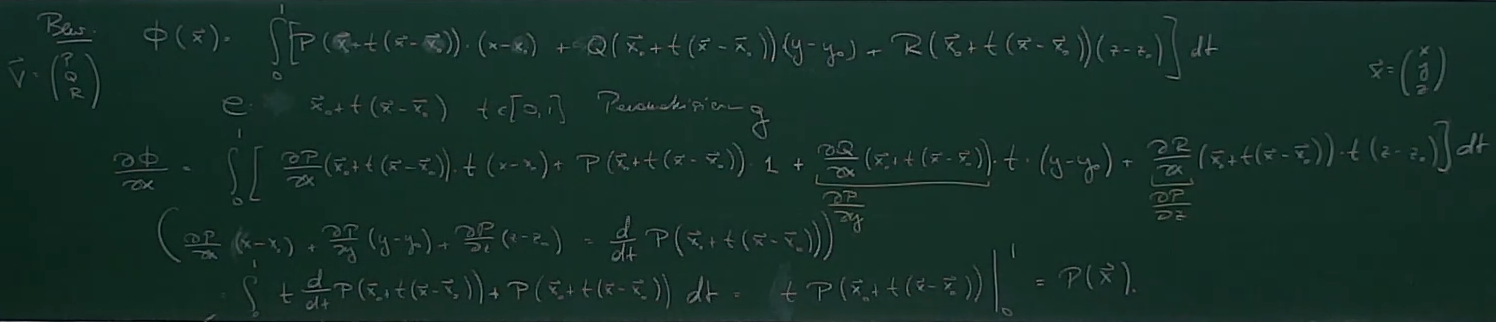 Bew. Φ(x⃗) = ∫₀¹ [P(x⃗₀+t(x⃗-x⃗₀))·(x-x₀) + Q(x⃗₀+t(x⃗-x⃗₀))(y-y₀) + R(x⃗₀+t(x⃗-x⃗₀))(z-z₀)] dt
V⃗ = (P Q R) x⃗ = (x y z)
e: x⃗₀+t(x⃗-x⃗₀) t∈[0,1] Parametrisierung
∂Φ/∂x = ∫₀¹ [ ∂P/∂x (x⃗₀+t(x⃗-x⃗₀))·t(x-x₀) + P(x⃗₀+t(x⃗-x⃗₀))·1 + ∂Q/∂x (x⃗₀+t(x⃗-x⃗₀))·t·(y-y₀) + ∂R/∂x (x⃗₀+t(x⃗-x⃗₀))·t(z-z₀)] dt
∂P/∂y ∂P/∂z
(∂P/∂x (x-x₀) + ∂P/∂y (y-y₀) + ∂P/∂z (z-z₀) = d/dt P(x⃗₀+t(x⃗-x⃗₀)))
= ∫₀¹ t d/dt P(x⃗₀+t(x⃗-x⃗₀)) + P(x⃗₀+t(x⃗-x⃗₀)) dt = t P(x⃗₀+t(x⃗-x⃗₀)) |₀¹ = P(x⃗).